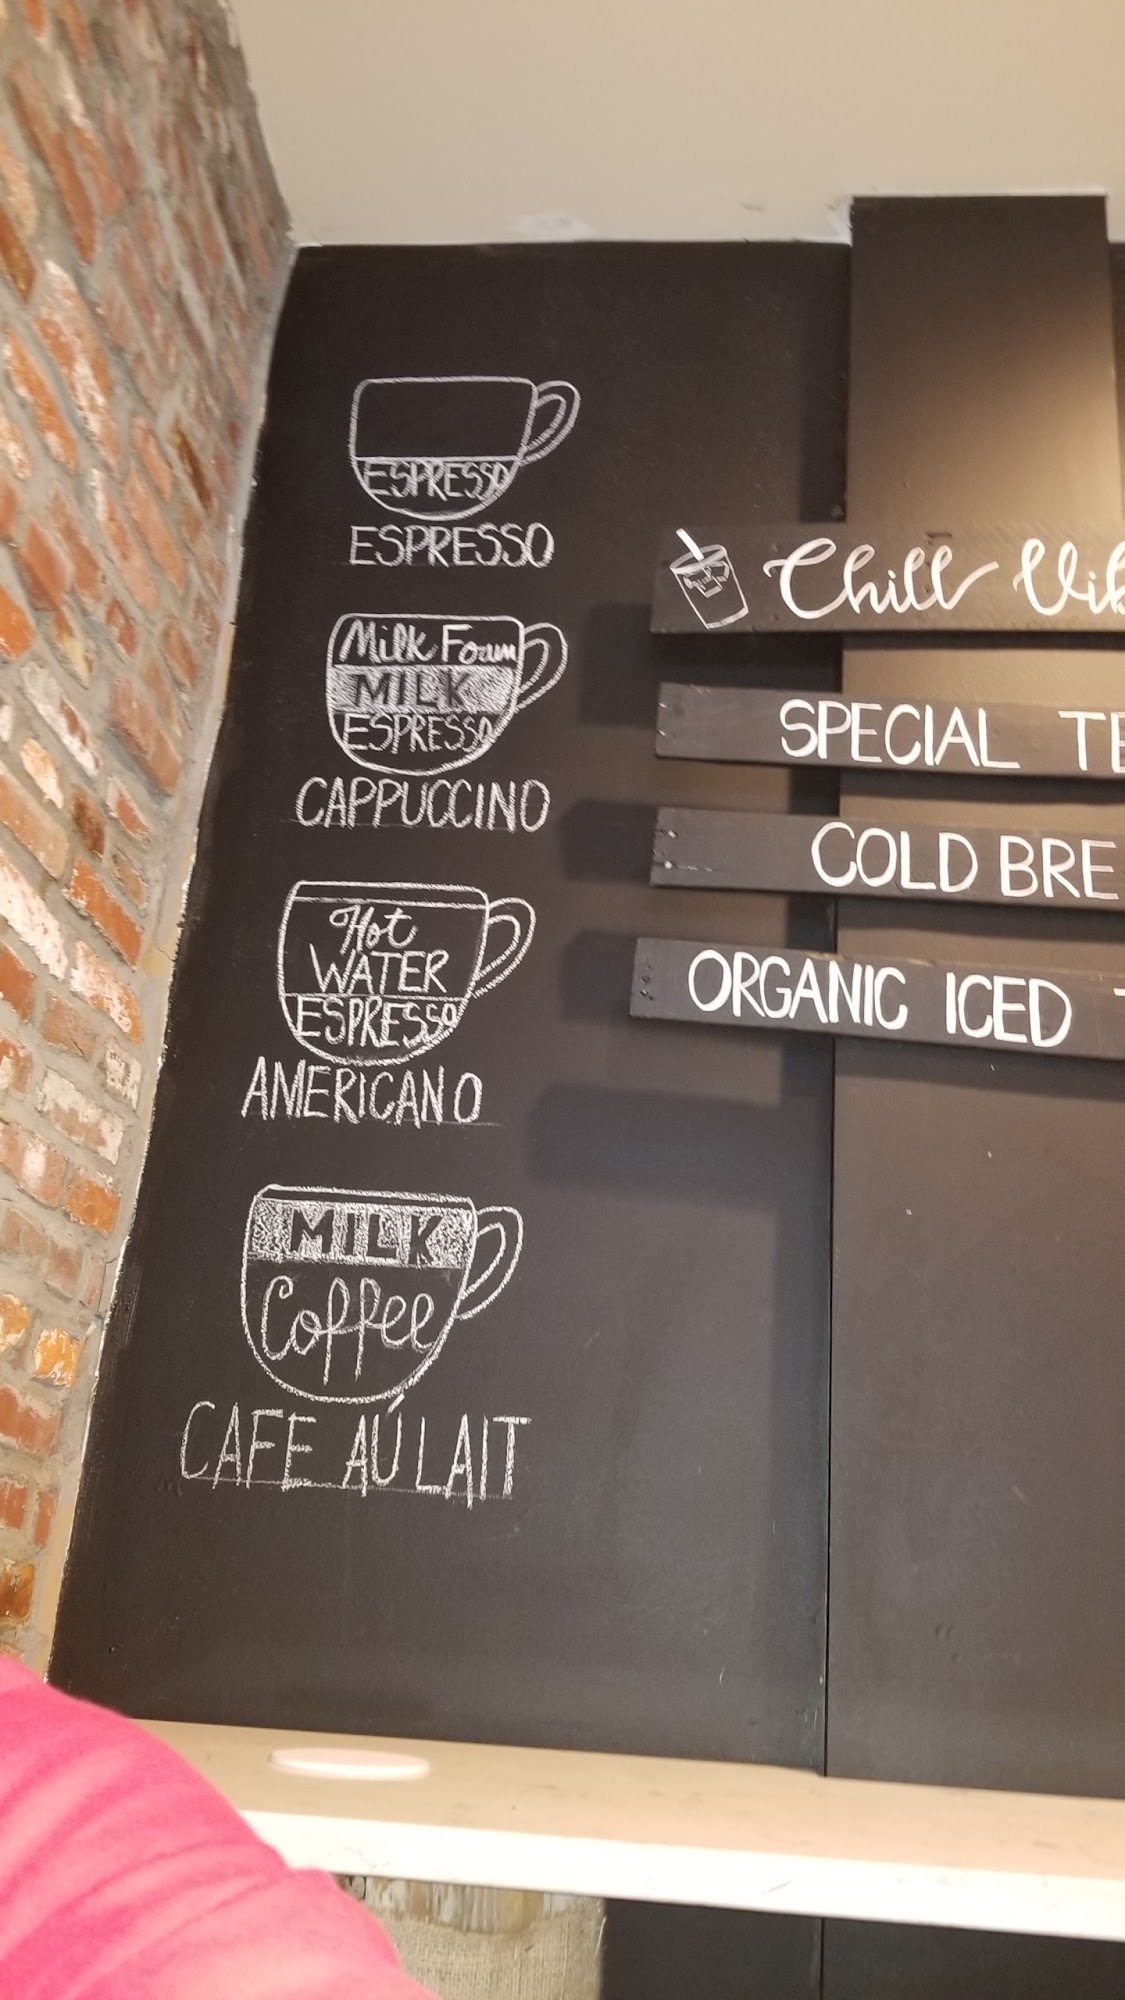 ESPRESSO
ESPRESSO
Milk Foam
MILK
ESPRESSO
CAPPUCCINO
Hot
WATER
ESPRESSO
AMERICANO
MILK
Coffee
CAFE AÚ LAIT
Chill
SPECIAL
COLD
ORGANIC ICED